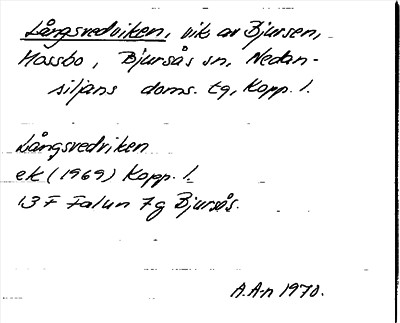 Långsvedviken, vik av Bjursen,
Mossbo, Bjursås sn, Nedan-
siljans doms. tg, Kopp. l.
Långsvedviken
ek (1969) Kopp. l.
13 F Falun 7 g Bjursås.
A.A-n 1970.